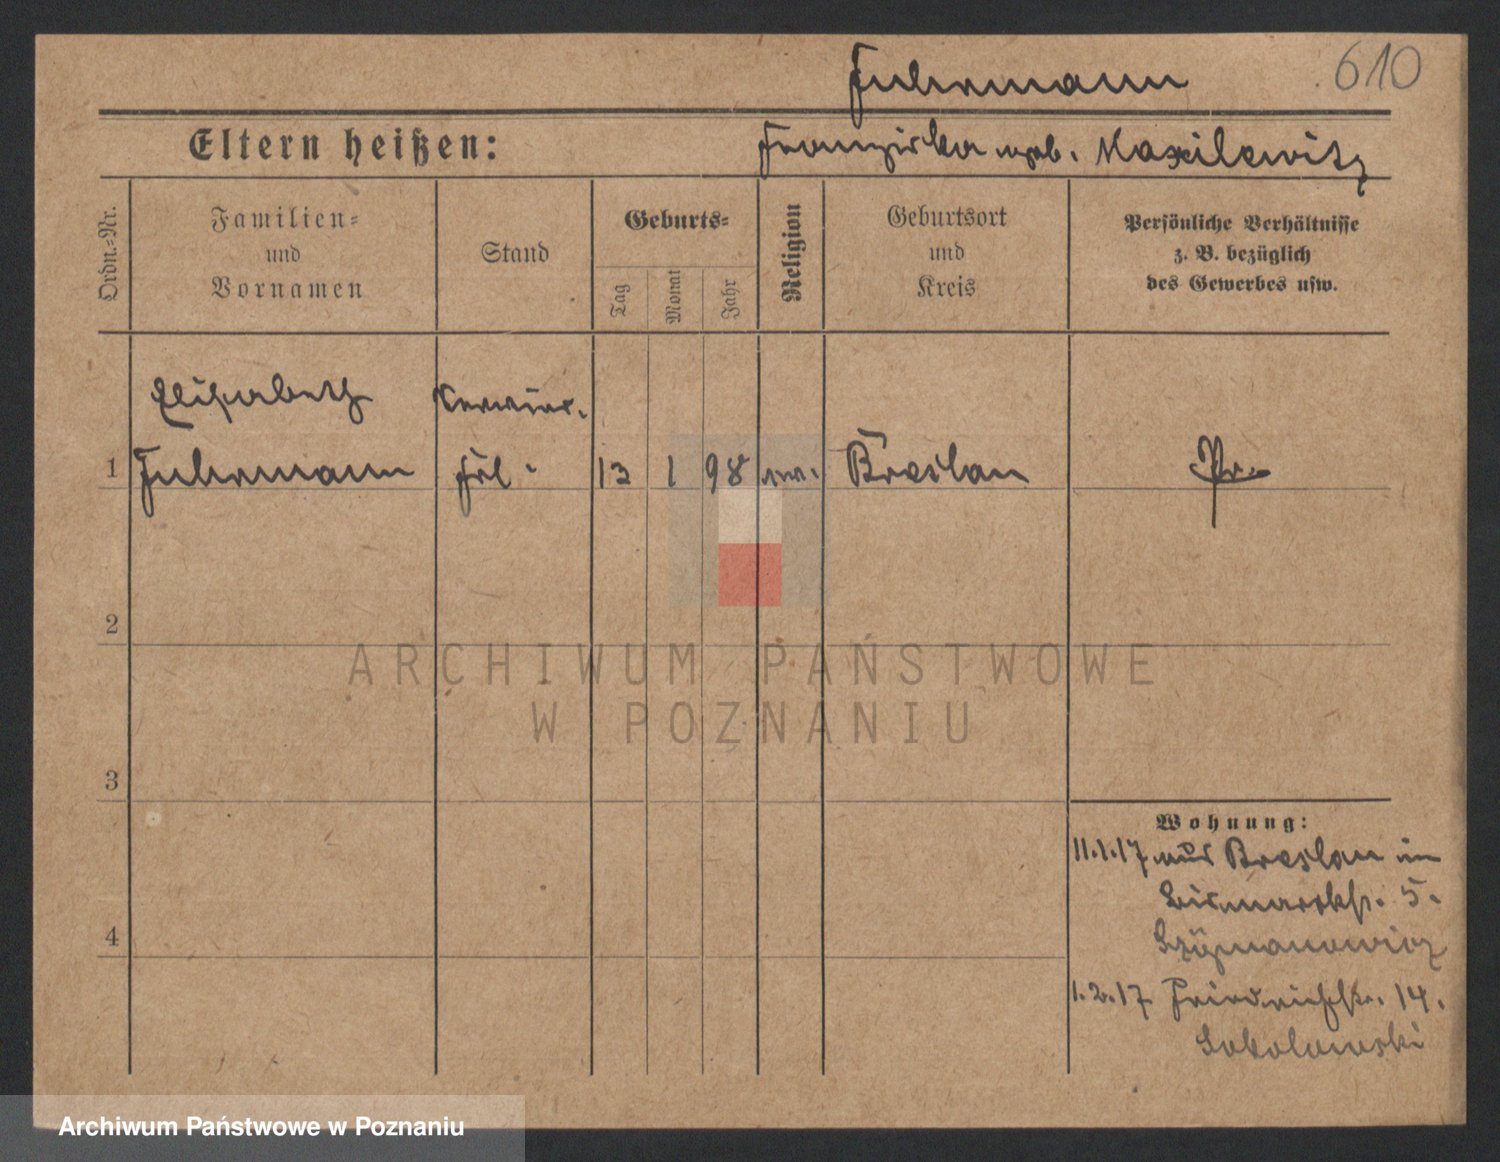 610
Fuhrmann
Eltern heißen:
Franziska geb.
Ordn.=Nr.
Familien=
und
Vornamen
Stand
Geburts=
Tag
Monat
Jahr
Religion
Geburtsort
und
Kreis
Persönliche Verhältnisse
z. B. bezüglich
des Gewerbes usw.
Elisabeth
1 Fuhrmann Frl. 13 1 98 Breslau Pr.
2
3
4
Wohnung:
11.1.17 aus Breslau in
Bismarckstr. 5.
Szymanowicz
1.2.17 Friedrichstr. 14.
Sokolowski
ARCHIWUM PAŃSTWOWE
W POZNANIU
Archiwum Państwowe w Poznaniu